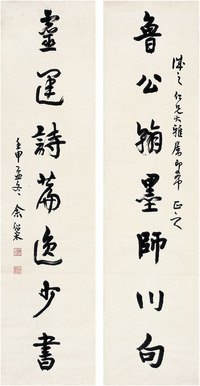 誠之仁兄大雅屬即希正之
魯公翰墨師川句
靈運詩篇逸少書
壬申孟冬余紹宋